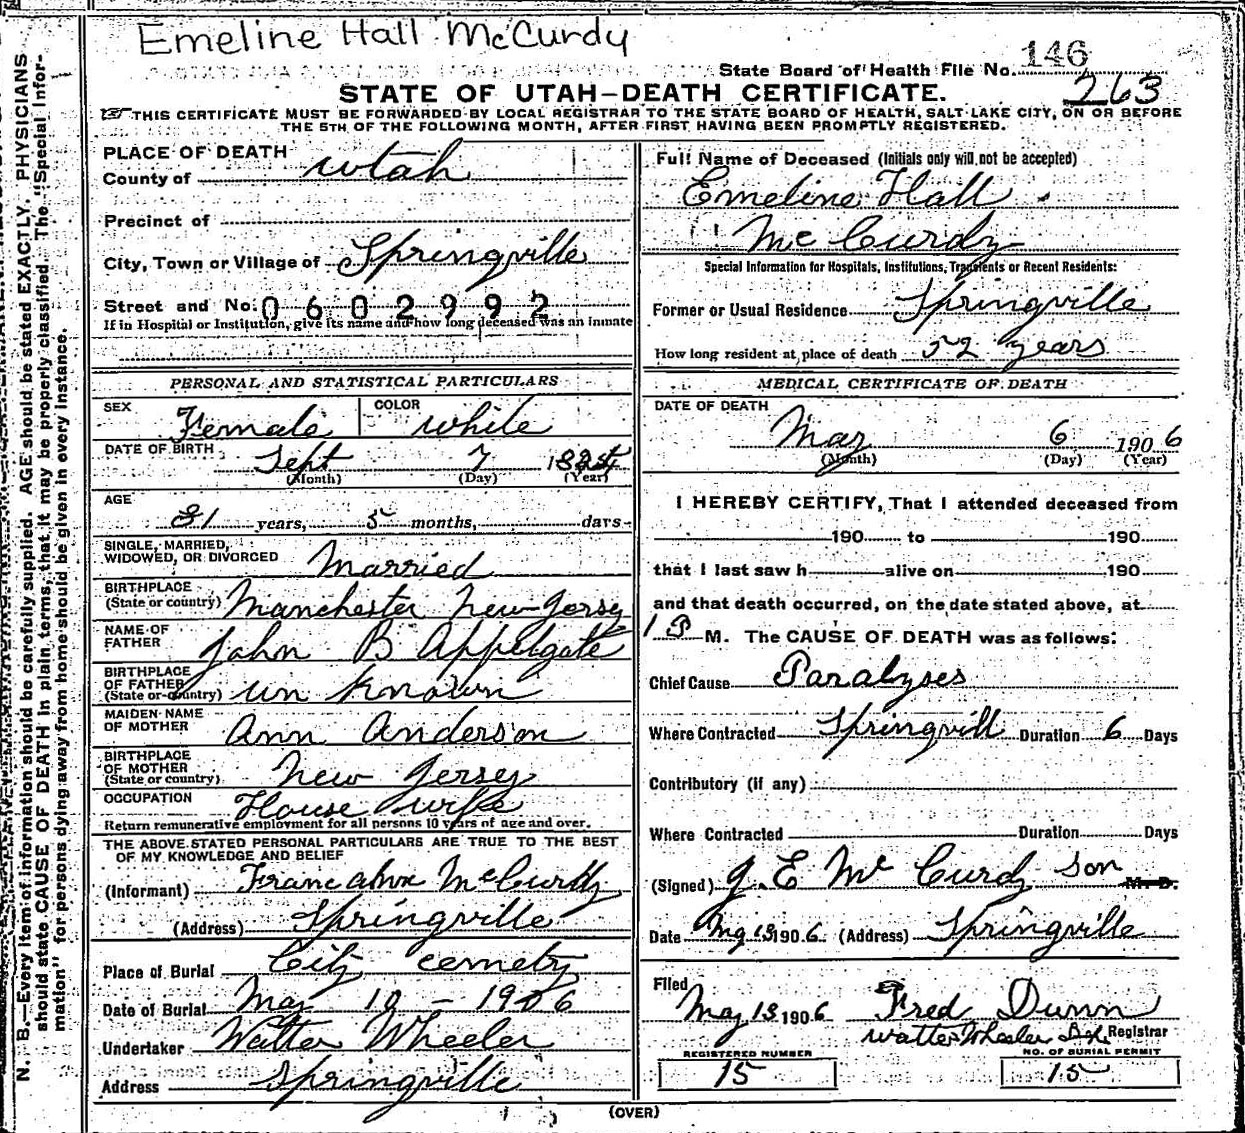 Emeline Hall McCurdy
State Board of Health File No. 146
263
STATE OF UTAH—DEATH CERTIFICATE.
THIS CERTIFICATE MUST BE FORWARDED BY LOCAL REGISTRAR TO THE STATE BOARD OF HEALTH, SALT LAKE CITY, ON OR BEFORE
THE 5TH OF THE FOLLOWING MONTH, AFTER FIRST HAVING BEEN PROMPTLY REGISTERED.
PLACE OF DEATH
County of Utah
Precinct of
City, Town or Village of Springville
Street and No. 0602992
If in Hospital or Institution, give its name and how long deceased was an inmate
PERSONAL AND STATISTICAL PARTICULARS
SEX Female COLOR White
DATE OF BIRTH Sept 7 18
(Month) (Day) (Year)
AGE
81 years, 5 months, days
SINGLE, MARRIED,
WIDOWED, OR DIVORCED Married
BIRTHPLACE
(State or country) Manchester New Jersey
NAME OF
FATHER John B Appelgate
BIRTHPLACE
OF FATHER
(State or country) un known
MAIDEN NAME
OF MOTHER Ann Anderson
BIRTHPLACE
OF MOTHER
(State or country) New Jersey
OCCUPATION House wife
Return remunerative employment for all persons 10 years of age and over.
THE ABOVE STATED PERSONAL PARTICULARS ARE TRUE TO THE BEST
OF MY KNOWLEDGE AND BELIEF
(Informant) McCurdy
(Address) Springville
Place of Burial City
Date of Burial 10 - 1906
Undertaker Walter Wheeler
Address Springville
Full Name of Deceased (Initials only will not be accepted)
Emeline Hall
Mc Curdy
Special Information for Hospitals, Institutions, Transients or Recent Residents:
Former or Usual Residence Springville
How long resident at place of death 52 years
MEDICAL CERTIFICATE OF DEATH
DATE OF DEATH
Mar 6 1906
(Month) (Day) (Year)
I HEREBY CERTIFY, That I attended deceased from
190 to 190
that I last saw h alive on 190
and that death occurred, on the date stated above, at
1 P M. The CAUSE OF DEATH was as follows:
Chief Cause Paralyses
Where Contracted Springvill Duration 6 Days
Contributory (if any)
Where Contracted Duration Days
(Signed) J. E Mc Curdy son M. D.
Date 13 1906 (Address) Springville
Filed
13 1906 Fred Dunn
Walter Wheeler Registrar
REGISTERED NUMBER
15
NO. OF BURIAL PERMIT
15
(OVER)
N. B.—Every item of information should be carefully supplied. AGE should be stated EXACTLY. PHYSICIANS
should state CAUSE OF DEATH in plain terms, that it may be properly classified. The "Special Infor-
mation" for persons dying away from home should be given in every instance.